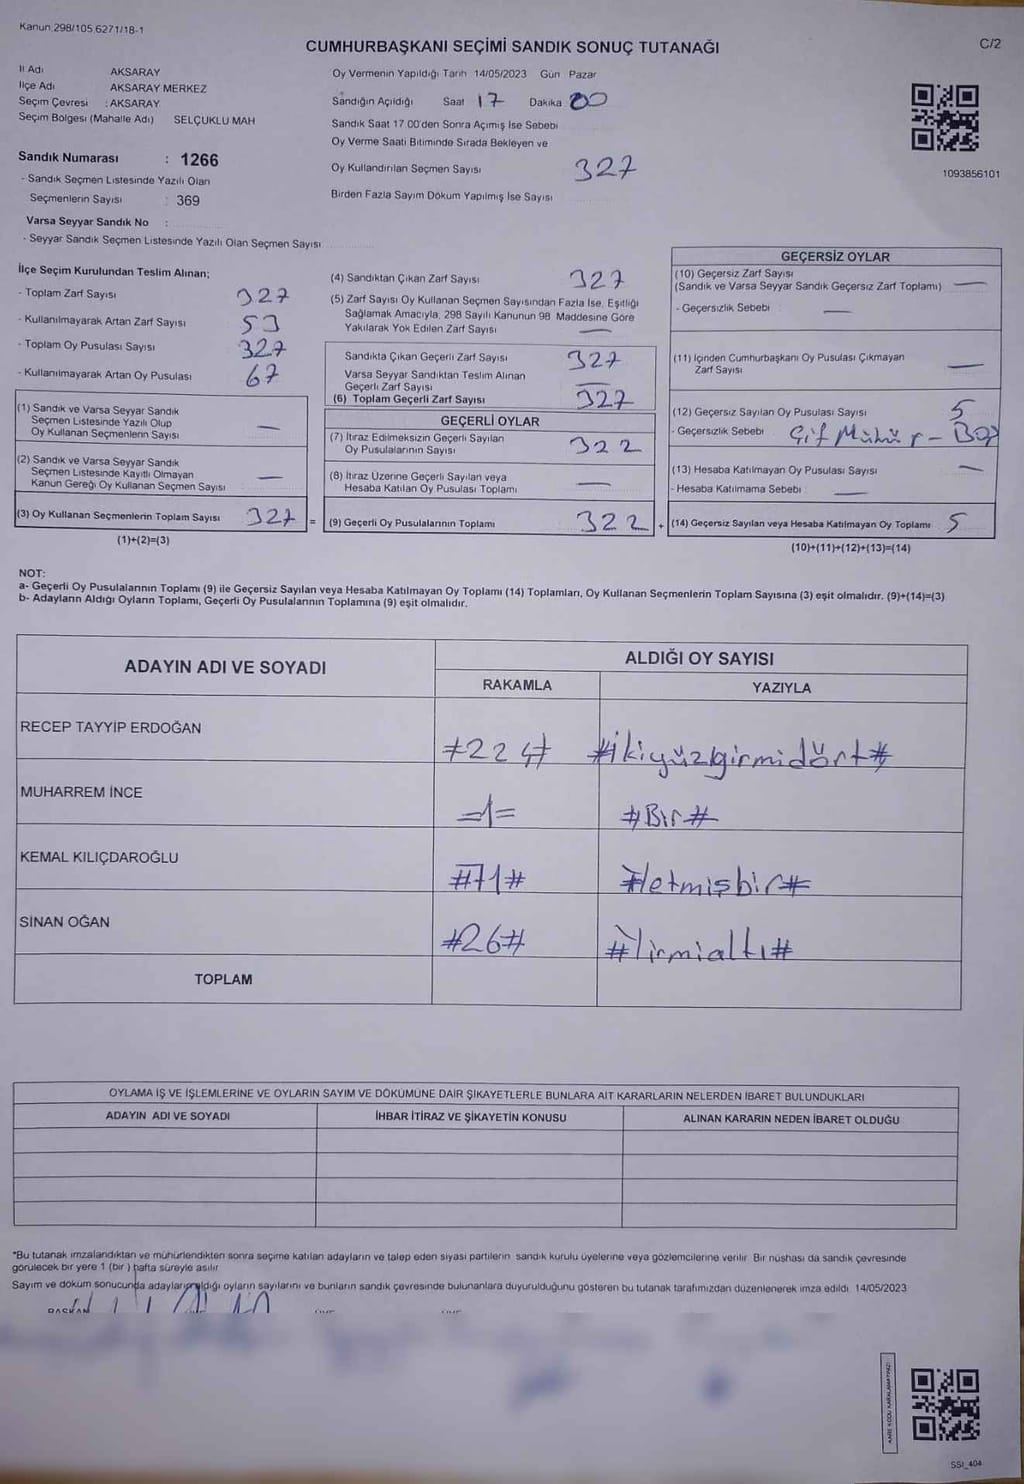 Kanun 298/105,6271/18-1
CUMHURBAŞKANI SEÇİMİ SANDIK SONUÇ TUTANAĞI
C/2
İl Adı AKSARAY
İlçe Adı AKSARAY MERKEZ
Seçim Çevresi : AKSARAY
Seçim Bölgesi (Mahalle Adı) SELÇUKLU MAH
Sandık Numarası : 1266
- Sandık Seçmen Listesinde Yazılı Olan
Seçmenlerin Sayısı : 369
Varsa Seyyar Sandık No :
- Seyyar Sandık Seçmen Listesinde Yazılı Olan Seçmen Sayısı
Oy Vermenin Yapıldığı Tarih 14/05/2023 Gün Pazar
Sandığın Açıldığı Saat 17 Dakika 00
Sandık Saat 17.00'den Sonra Açımış İse Sebebi
Oy Verme Saati Bitiminde Sırada Bekleyen ve
Oy Kullandırılan Seçmen Sayısı 327
Birden Fazla Sayım Döküm Yapılmış İse Sayısı
1093856101
İlçe Seçim Kurulundan Teslim Alınan;
- Toplam Zarf Sayısı 327
- Kullanılmayarak Artan Zarf Sayısı 53
- Toplam Oy Pusulası Sayısı 327
- Kullanılmayarak Artan Oy Pusulası 67
(1) Sandık ve Varsa Seyyar Sandık
Seçmen Listesinde Yazılı Olup
Oy Kullanan Seçmenlerin Sayısı —
(2) Sandık ve Varsa Seyyar Sandık
Seçmen Listesinde Kayıtlı Olmayan
Kanun Gereği Oy Kullanan Seçmen Sayısı —
(3) Oy Kullanan Seçmenlerin Toplam Sayısı 327 =
(1)+(2)=(3)
(4) Sandıktan Çıkan Zarf Sayısı 327
(5) Zarf Sayısı Oy Kullanan Seçmen Sayısından Fazla İse, Eşitliği
Sağlamak Amacıyla; 298 Sayılı Kanunun 98 Maddesine Göre
Yakılarak Yok Edilen Zarf Sayısı —
Sandıkta Çıkan Geçerli Zarf Sayısı 327
Varsa Seyyar Sandıktan Teslim Alınan
Geçerli Zarf Sayısı —
(6) Toplam Geçerli Zarf Sayısı 327
GEÇERLİ OYLAR
(7) İtiraz Edilmeksizin Geçerli Sayılan
Oy Pusulalarının Sayısı 322
(8) İtiraz Üzerine Geçerli Sayılan veya
Hesaba Katılan Oy Pusulası Toplamı —
(9) Geçerli Oy Pusulalarının Toplamı 322 +
GEÇERSİZ OYLAR
(10) Geçersiz Zarf Sayısı
(Sandık ve Varsa Seyyar Sandık Geçersiz Zarf Toplamı) —
- Geçersizlik Sebebi —
(11) İçinden Cumhurbaşkanı Oy Pusulası Çıkmayan
Zarf Sayısı —
(12) Geçersiz Sayılan Oy Pusulası Sayısı 5
- Geçersizlik Sebebi Çif Mühür - Boş
(13) Hesaba Katılmayan Oy Pusulası Sayısı —
- Hesaba Katılmama Sebebi —
(14) Geçersiz Sayılan veya Hesaba Katılmayan Oy Toplamı 5
(10)+(11)+(12)+(13)=(14)
NOT:
a- Geçerli Oy Pusulalarının Toplamı (9) ile Geçersiz Sayılan veya Hesaba Katılmayan Oy Toplamı (14) Toplamları, Oy Kullanan Seçmenlerin Toplam Sayısına (3) eşit olmalıdır. (9)+(14)=(3)
b- Adayların Aldığı Oyların Toplamı, Geçerli Oy Pusulalarının Toplamına (9) eşit olmalıdır.
ADAYIN ADI VE SOYADI
ALDIĞI OY SAYISI
RAKAMLA YAZIYLA
RECEP TAYYİP ERDOĞAN #224# #ikiyüzYirmidört#
MUHARREM İNCE =1= #Bir#
KEMAL KILIÇDAROĞLU #71# #Yetmişbir#
SİNAN OĞAN #26# #Yirmialtı#
TOPLAM
OYLAMA İŞ VE İŞLEMLERİNE VE OYLARIN SAYIM VE DÖKÜMÜNE DAİR ŞİKAYETLERLE BUNLARA AİT KARARLARIN NELERDEN İBARET BULUNDUKLARI
ADAYIN ADI VE SOYADI İHBAR İTİRAZ VE ŞİKAYETİN KONUSU ALINAN KARARIN NEDEN İBARET OLDUĞU
*Bu tutanak imzalandıktan ve mühürlendikten sonra seçime katılan adayların ve talep eden siyasi partilerin sandık kurulu üyelerine veya gözlemcilerine verilir. Bir nüshası da sandık çevresinde
görülecek bir yere 1 (bir) hafta süreyle asılır
Sayım ve döküm sonucunda adayların aldığı oyların sayılarını ve bunların sandık çevresinde bulunanlara duyurulduğunu gösteren bu tutanak tarafımızdan düzenlenerek imza edildi. 14/05/2023
BAŞKAN
KARE KODU KARALAMAYINIZ!
SSI_404